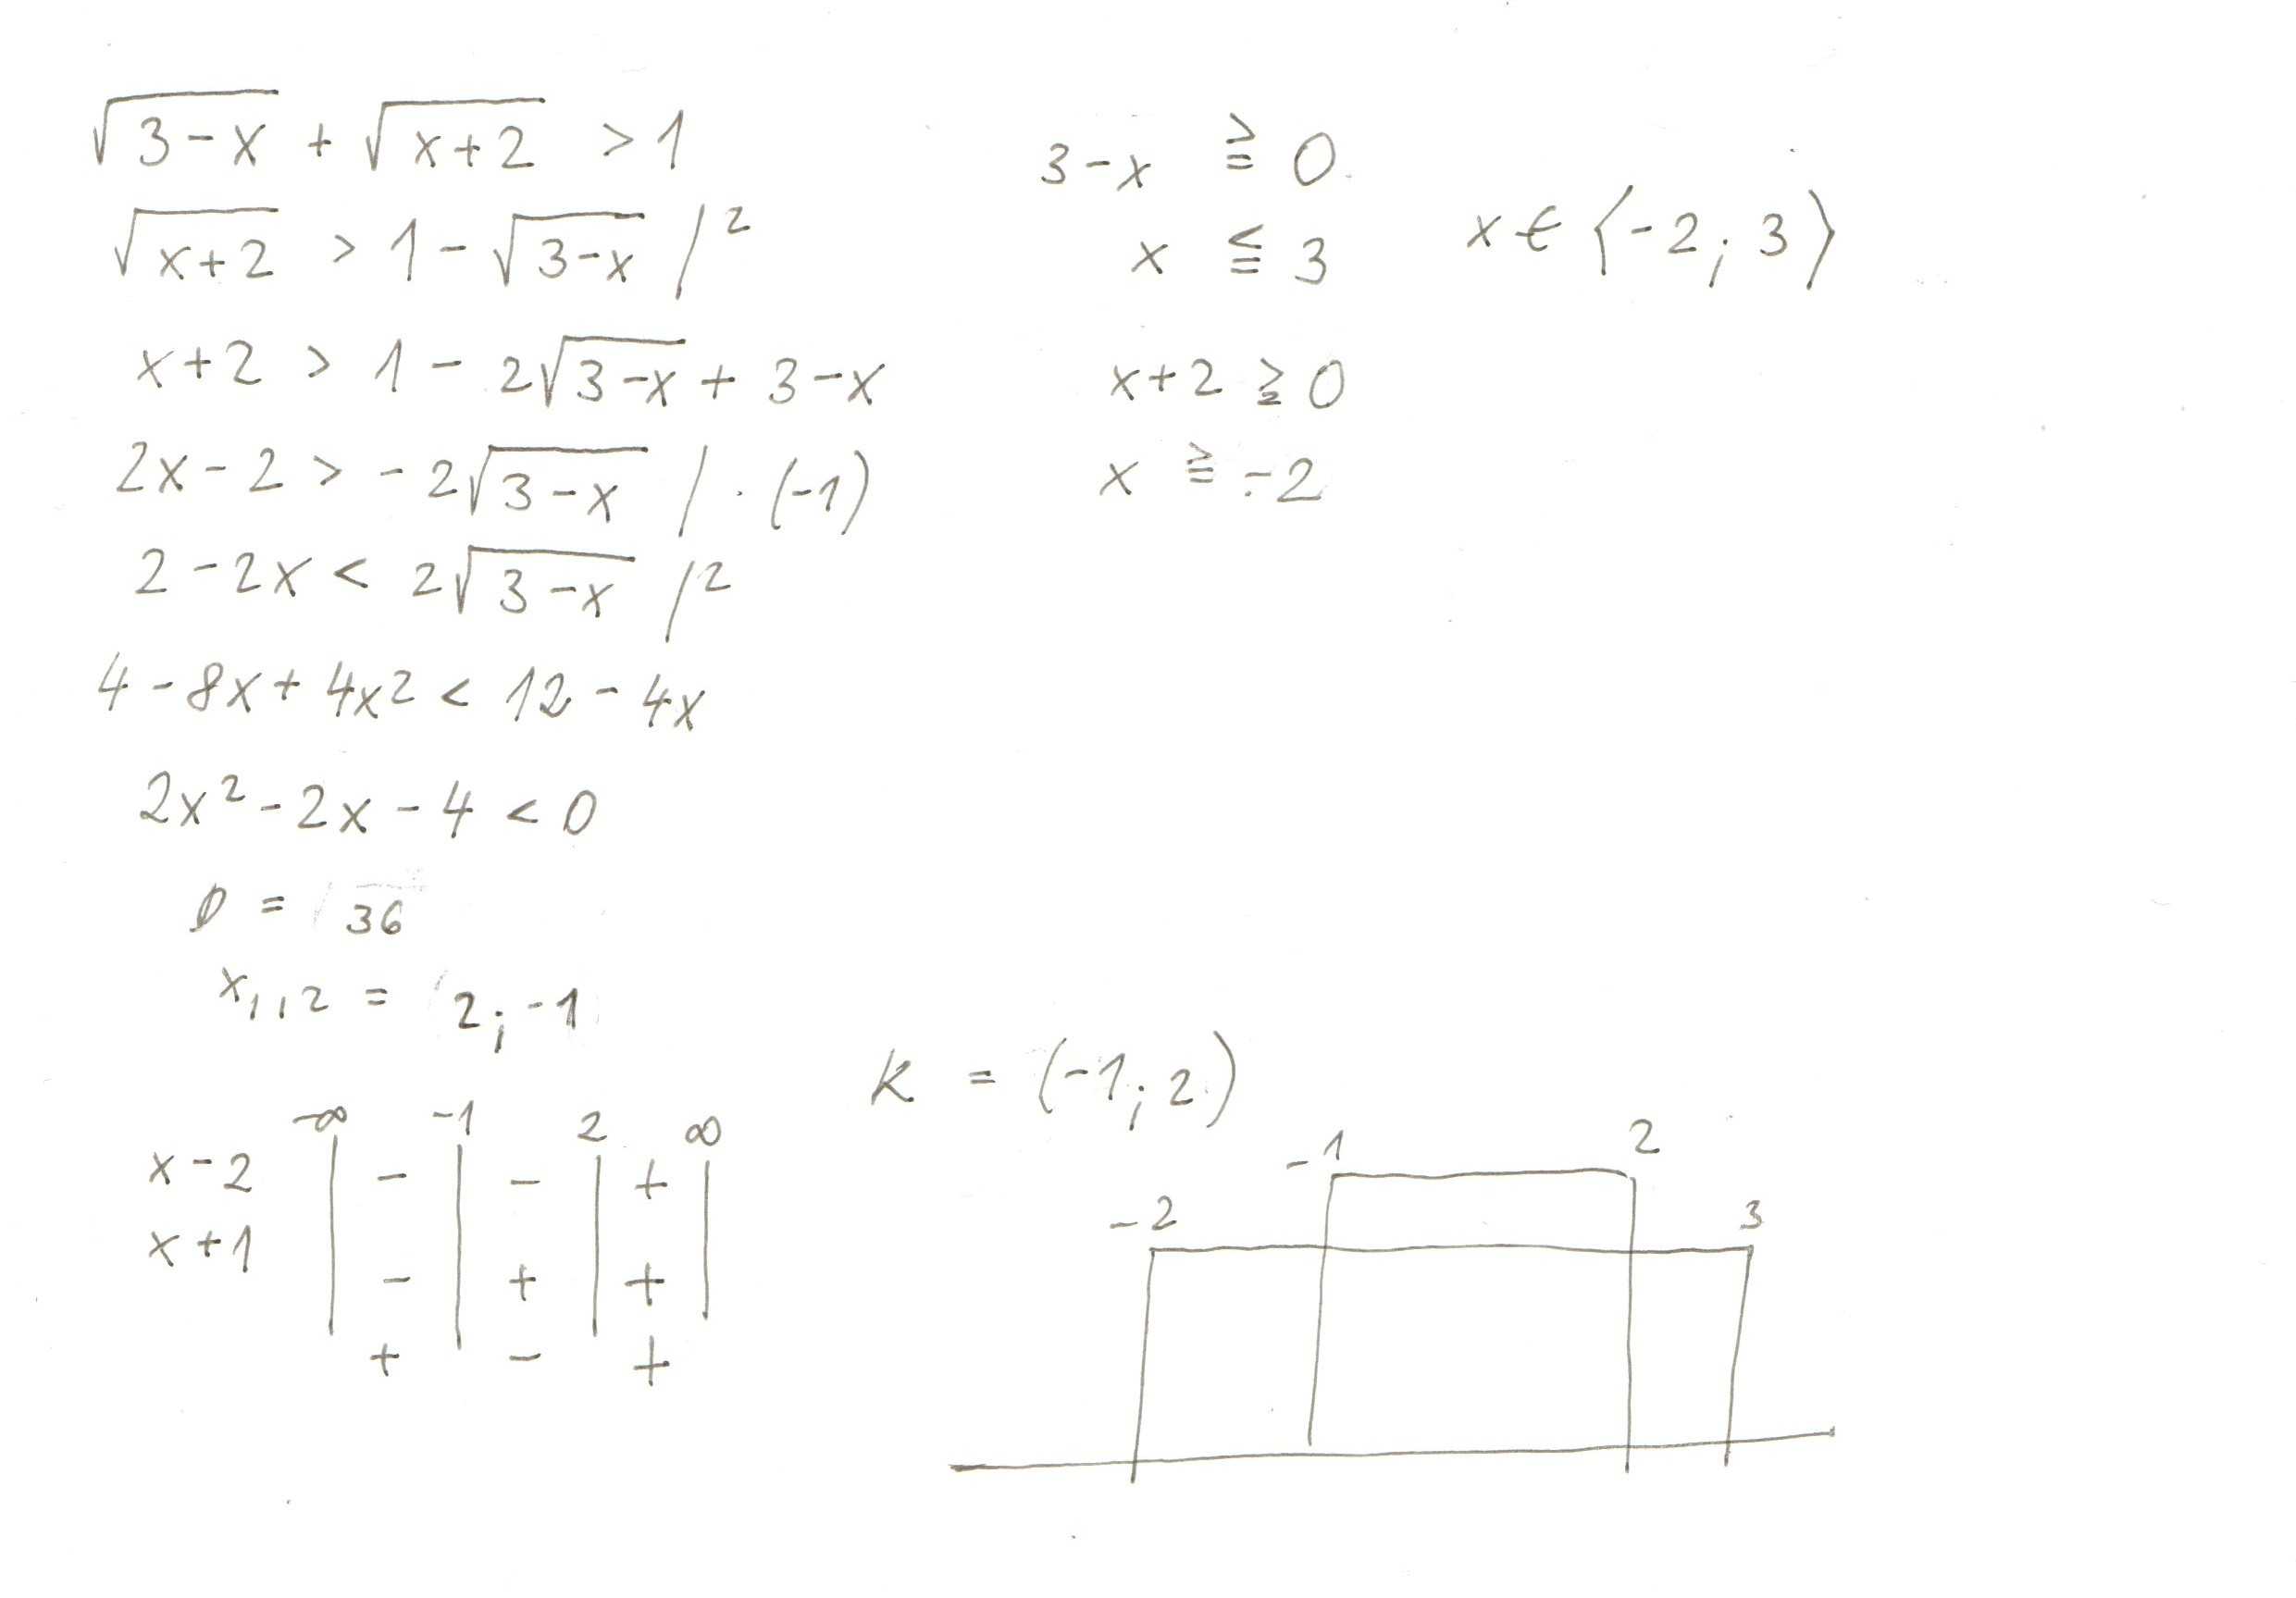 √(3-x) + √(x+2) > 1
√(x+2) > 1 - √(3-x) /²
x+2 > 1 - 2√(3-x) + 3-x
2x-2 > -2√(3-x) / · (-1)
2-2x < 2√(3-x) /²
4-8x+4x² < 12-4x
2x²-2x-4 < 0
D = 36
x₁,₂ = 2; -1
3-x ≧ 0
x ≦ 3
x+2 ≧ 0
x ≧ -2
x ∈ ⟨-2; 3⟩
-∞ -1 2 ∞
x-2 | - | - | + |
x+1 | - | + | + |
+ - +
K = (-1; 2)
-1 2
-2 3